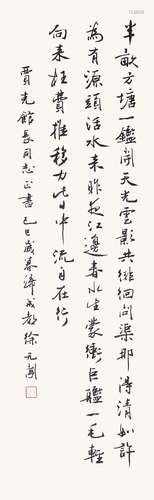 半畝方塘一鑑開天光雲影共徘徊問渠那得清如許
為有源頭活水來昨夜江邊春水生蒙衝巨艦一毛輕
向來枉費推移力此日中流自在行
賈館長同志正書己巳歲暮歸成都徐无聞